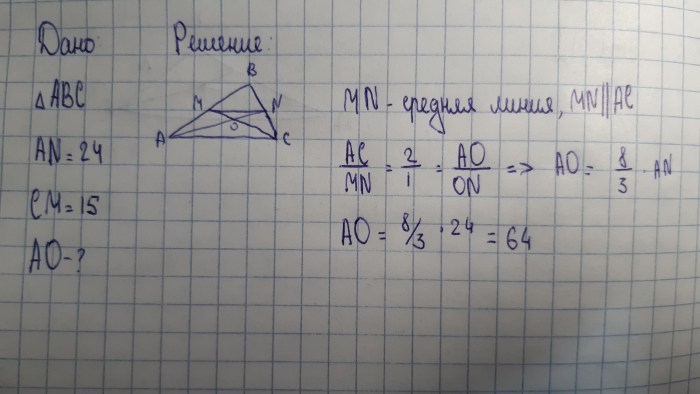 Дано:
Решение:
△ABC
AN = 24
CM = 15
AO - ?
B
M N
A O C
MN - средняя линия, MN || AC
AC/MN = 2/1 = AO/ON => AO = 8/3 · AN
AO = 8/3 · 24 = 64